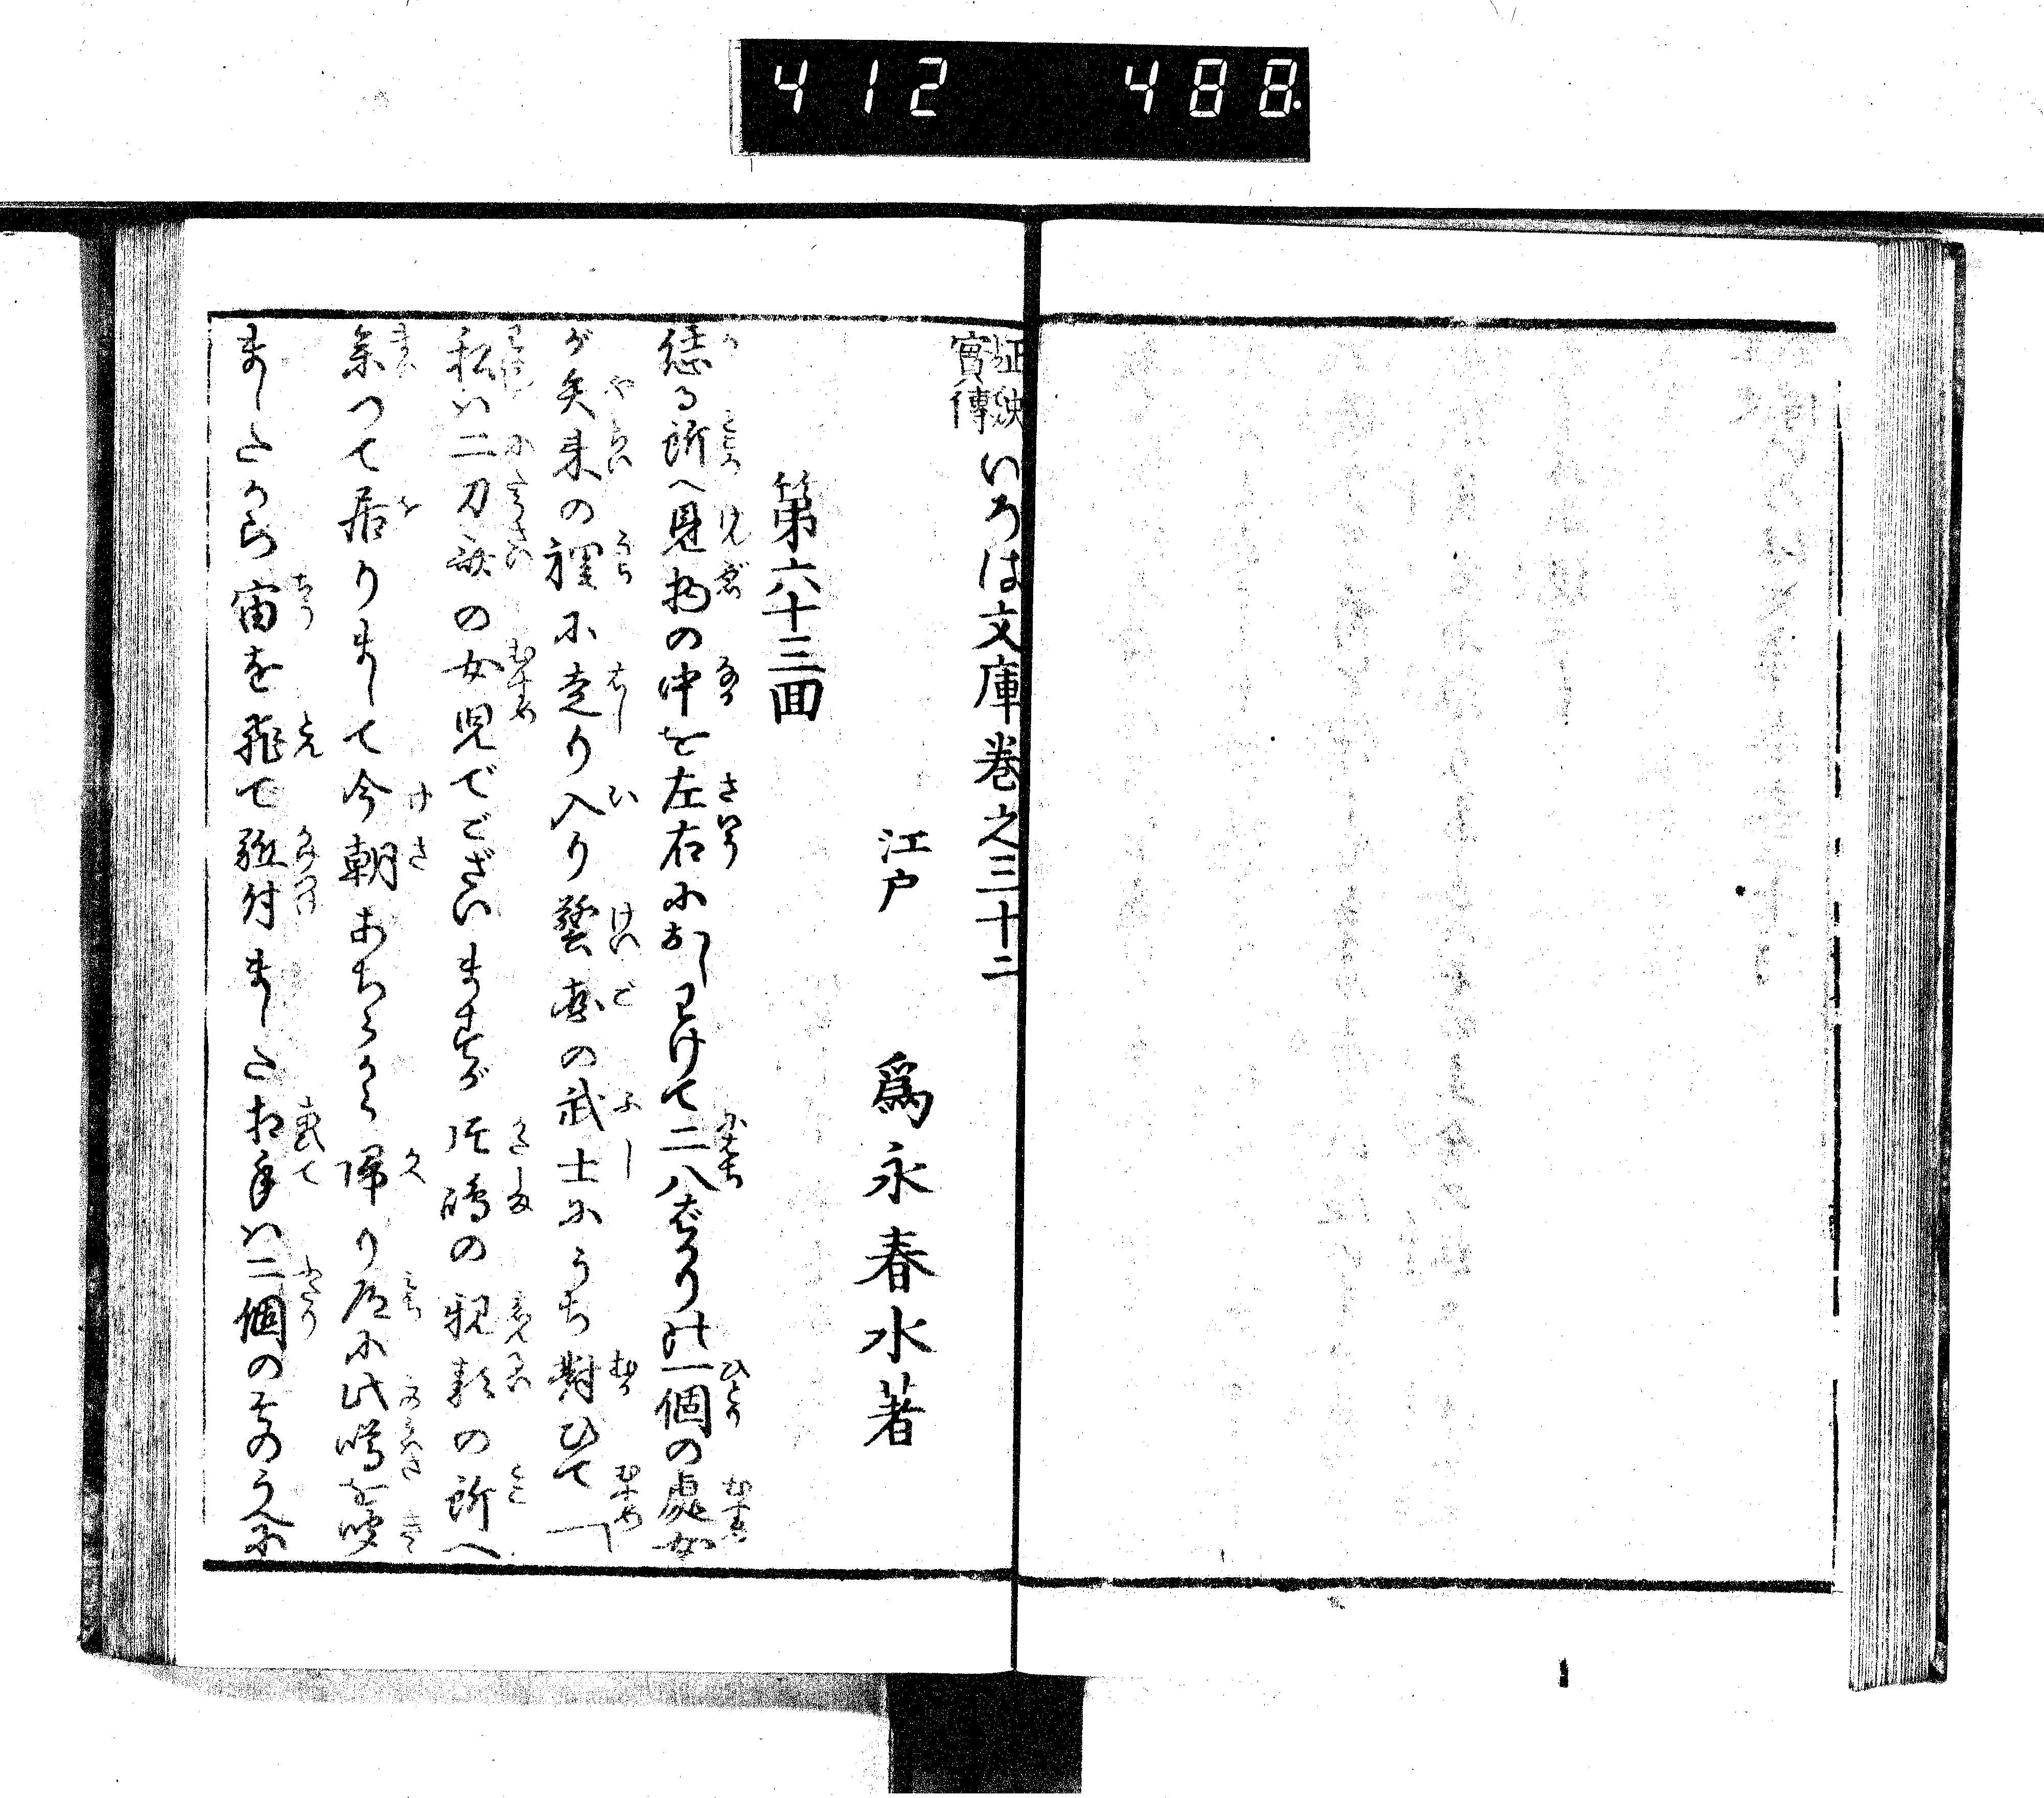 412 488.
正史
實傳 いろは文庫巻之三十二
江戸 爲永春水著
第六十三回
恁る所へ見物の中を左右におしわけて二八ばかりの一個の處女
が矢来の裡に走り入り警固の武士にうち對ひて「
私は二刀の女児でございますが の親類の所へ
参つて居りまして今朝あちらから帰り道に此噂を聞
ましたから宙を飛て駈付ましたお手は二個のものうへに